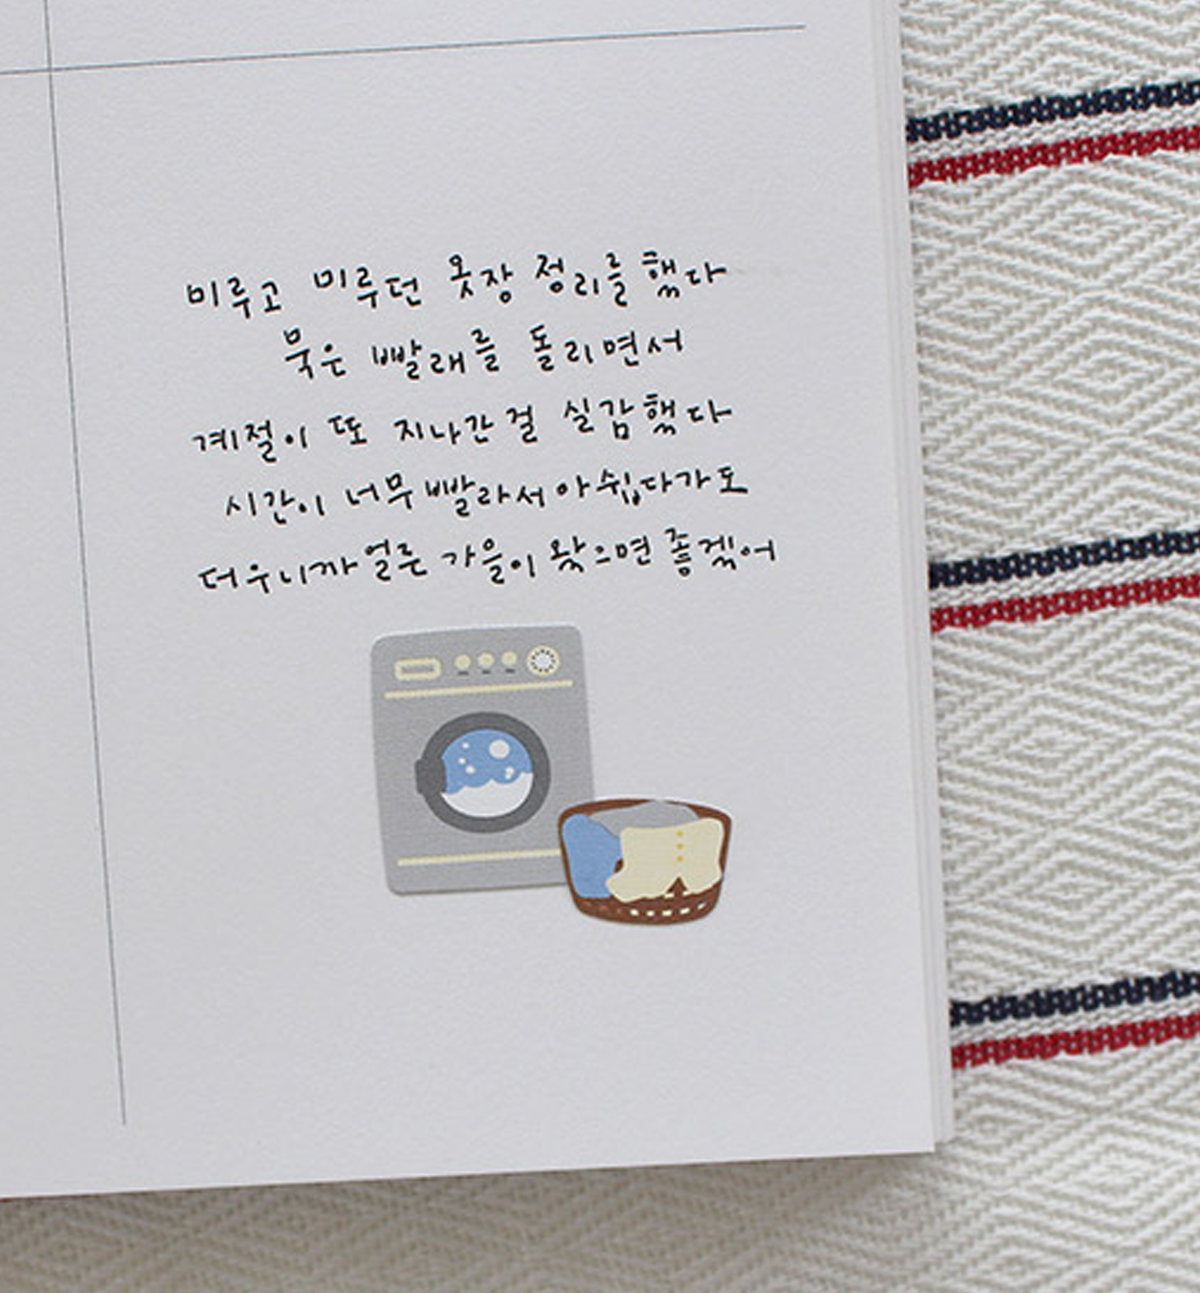 미루고 미루던 옷장 정리를 했다
묵은 빨래를 돌리면서
계절이 또 지나간 걸 실감했다
시간이 너무 빨라서 아쉽다가도
더우니까 얼른 가을이 왔으면 좋겠어